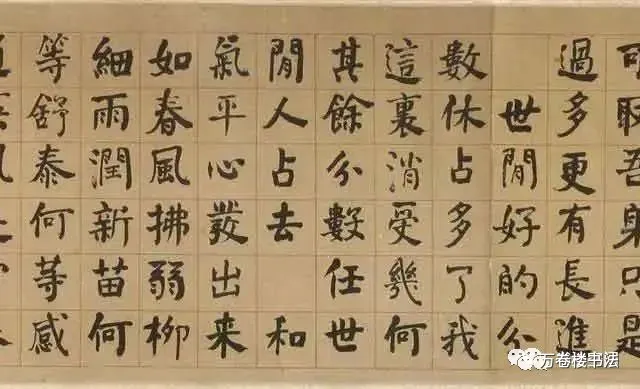 可取吾身只是
過多更有長進
世閒好的分
數休占多了我
這裏消受幾何
其餘分數任世
閒人占去 和
氣平心發出来
如春風拂弱柳
細雨潤新苗何
等舒泰何等感
万卷楼书法